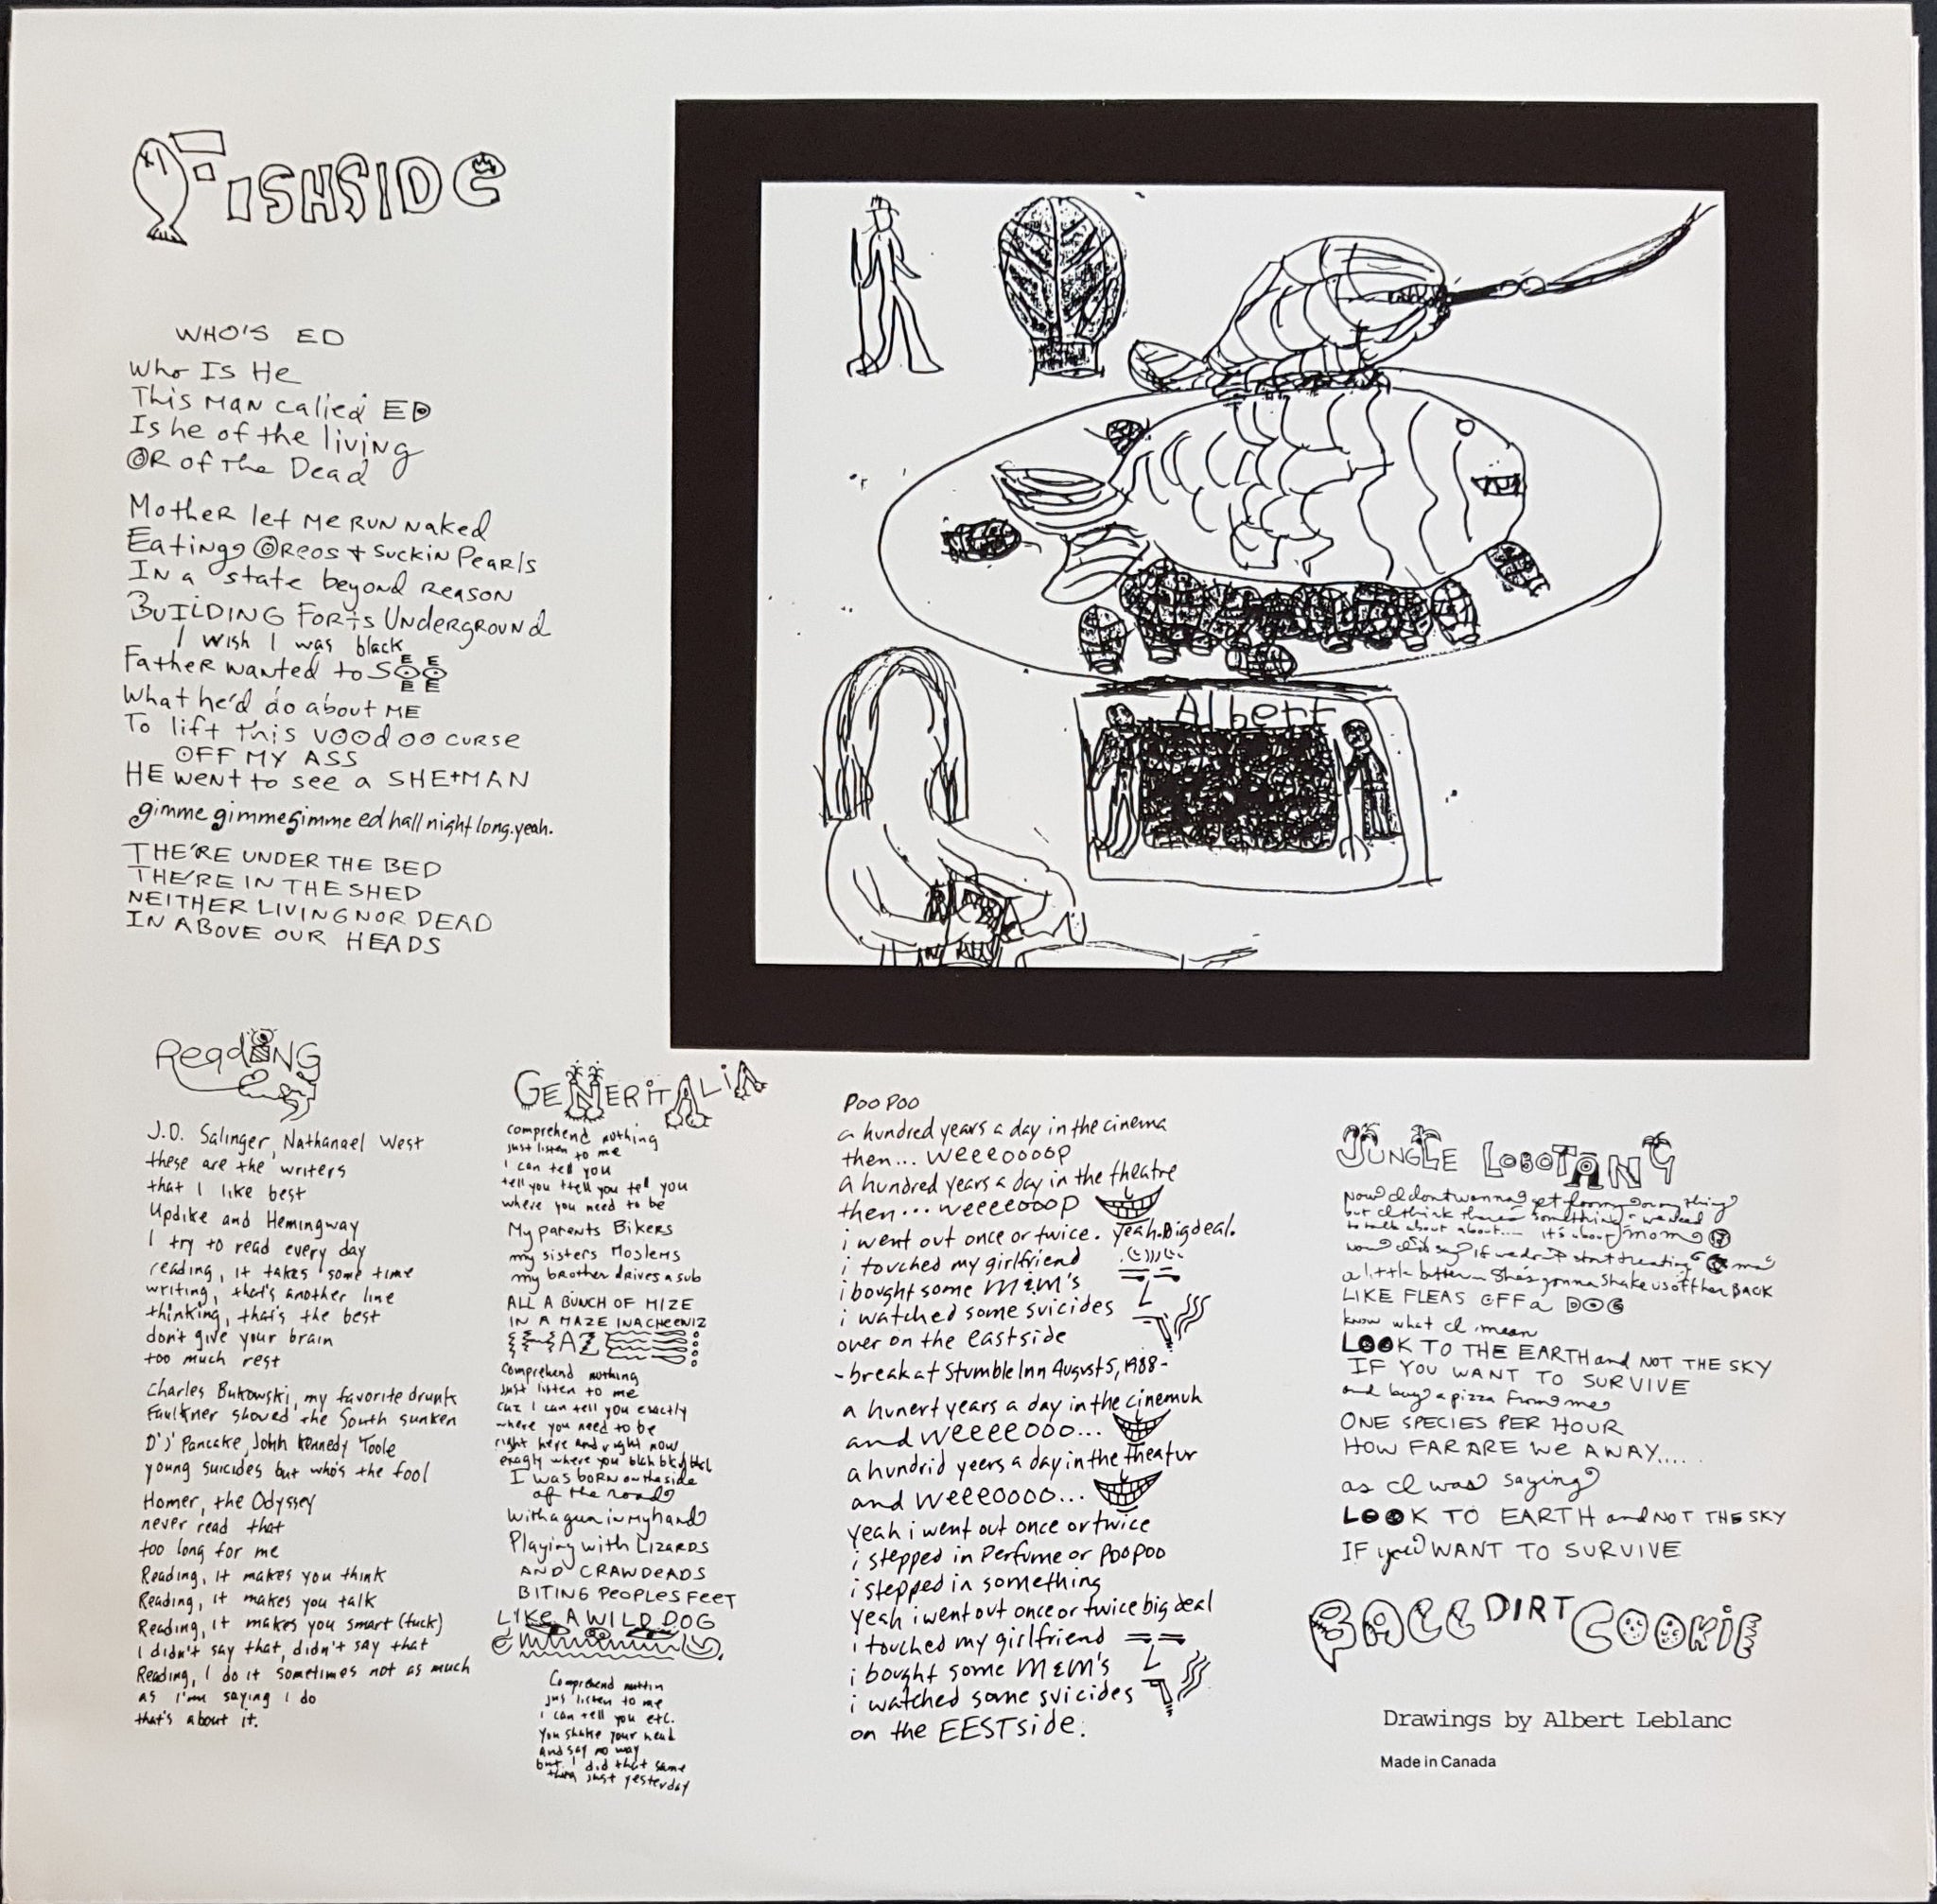 FISHSIDE
WHO'S ED
Who Is He
This MAN called ED
Is he of the living
OR of The Dead
Mother let Me RUN Naked
Eating OReos + suckin Pearls
IN a state beyond REASON
BUILDING FORts UNdergRouNd
I wish I was black
FatheR wanted to SEE
What he'd do about ME
To lift this voodoo curse
OFF MY ASS
HE went to see a SHE+MAN
gimme gimme gimme ed hall night long. yeah.
THE'RE UNDER THE BED
THE'RE IN THE SHED
NEITHER LIVING NOR DEAD
IN ABOVE OUR HEADS
Albert
ReadiNG
J.D. Salinger, Nathanael West
these are the writers
that I like best
Updike and Hemingway
I try to read every day
reading, it takes some time
writing, that's another line
thinking, that's the best
don't give your brain
too much rest
Charles Bukowski, my favorite drunk
Faulkner showed the South sunken
D'J' Pancake, John Kennedy Toole
young suicides but who's the fool
Homer, the Odyssey
never read that
too long for me
Reading, it makes you think
Reading, it makes you talk
Reading, it makes you smart (fuck)
I didn't say that, didn't say that
Reading, I do it sometimes not as much
as I'm saying I do
that's about it.
GENERITALIA
comprehend nothing
just listen to me
I can tell you
tell you ttell you tell you
where you need to be
My parents Bikers
my sisters Moslems
my brother drives a sub
ALL A BUNCH OF MIZE
IN A MAZE INACHEENIZ
Comprehend nothing
Just listen to me
cuz I can tell you exactly
where you need to be
right here and right now
exactly where you blah
I was boRN on the side
of the road
with a gun in my hand
Playing with LIZARDS
AND CRAWDEADS
BITING PEOPLES FEET
LIKE A WILD DOG
Comprehend nuttin
jus listen to me
i can tell you etc.
You shake your head
and say no way
but I did that same
thing just yesterday
POOPOO
a hundred years a day in the cinema
then... weeeoooop
a hundred years a day in the theatre
then... weeeeooop
i went out once or twice. Yeah. Big deal.
i touched my girlfriend
i bought some M&M's
i watched some suicides
over on the eastside
- break at Stumble Inn August 5, 1988 -
a hunert years a day in the cinemuh
and weeeeooo...
a hundrid yeers a day in the theatur
and weeeoooo...
yeah i went out once or twice
i stepped in Perfume or POOPOO
i stepped in something
yeah i went out once or twice big deal
i touched my girlfriend
i bought some M&M's
i watched some suicides
on the EESTside.
JUNGLE LOBOTANY
Now I dont wanna get on any thing
but I think there's something we need
to talk about about.... it's about mom
now I say If we don't start treating ma
a little better... She's gonna Shake us off her BACK
LIKE FLEAS OFF a DOG
know what I mean
LOOK TO THE EARTH and NOT THE SKY
IF YOU WANT TO SURVIVE
and buy a pizza from me
ONE SPECIES PER HOUR
HOW FAR ARE WE AWAY.....
as I was saying
LOOK TO EARTH and NOT THE SKY
IF you WANT TO SURVIVE
BALL DIRT COOKiE
Drawings by Albert Leblanc
Made in Canada